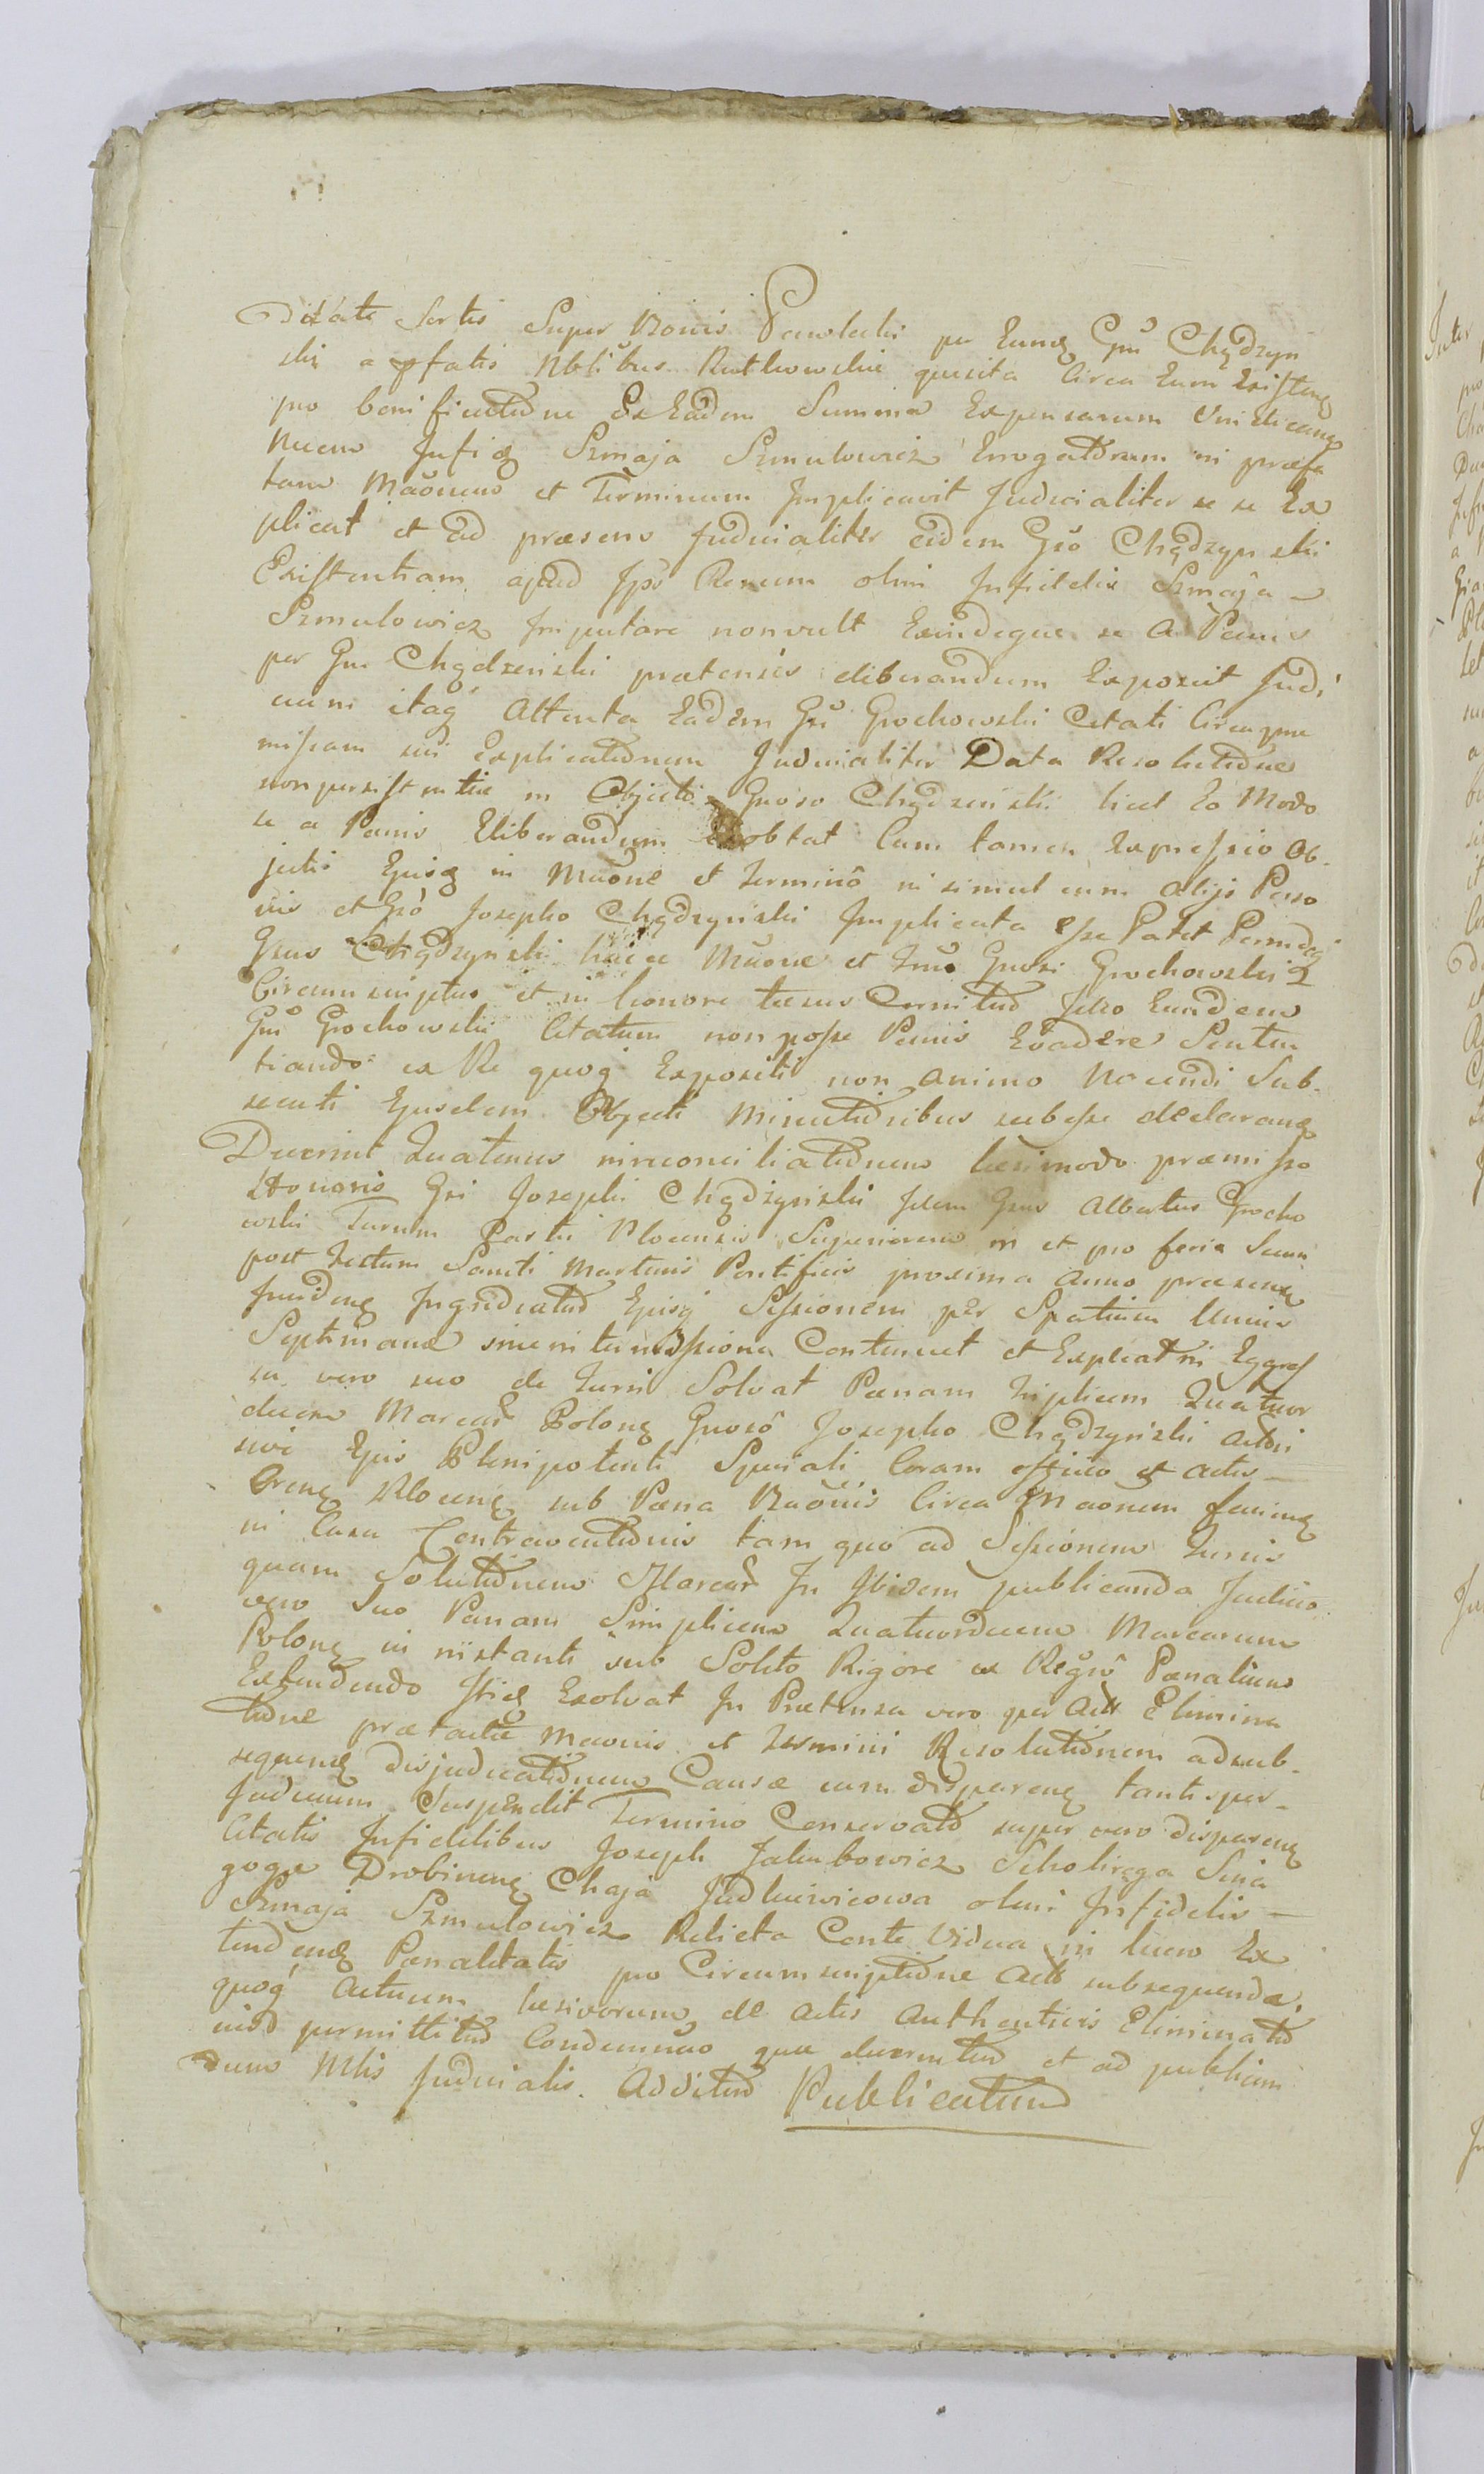 Ditate Sortis Super Bonis Pawłocki per Eumq Gnu Chądzyn
ski a pfatis Nblibus Rutkowskie quesita Circa Eum Existenq
pro bonificatiõne Ex Eadem Summa Expensarum Vindicanq
necem Infiq Szmaja Szmulowicz Erogatõrum in præfa
tam Mãonem et Terminum Implicavit Judicialiter se se Ex
plicat et ad præsens Judicialiter eidem Gso Chądzyn ski
Existentiam apud Ipsũ Rerum olim Infidelis Szmaja –
Szmulowicz Imputare nonvult Exindeque se a Pænis
per Gm Chądzenski prætensis eliberandum Exposcit Judi
cium itaq Attenta Eadem Gsi Grochowski Citati Circapræ
missam sui Explicatiõnem Judicialiter Data Resolutiõne
non persistentiæ in Objectis Gnoso Chądzenski licet Eo Modo
se a Pænis Eliberandum Exobtat Cum tamen Expressio Ob-
jectis Ejusq in Mãone et Terminõ in simul cum Alijs Perso
nis et Gsõ Josepho Chądzynski Implicata Esse Patet Perindeq
Gsus Chądzynski hacce Mãone et Tnõ Gnosi Grochowski
Circumscriptus et in honore læsus Cernitur Ideo Eundem
Gnũ Grochowski Citatum non posse Pænis Evadere Senten
tiando ex Re quoq Expositi non animo Nocendi Sub-
secuti Ejusdem Objecti Minutiõribus subesse declaranq
Decernit Quatenus in reconciliatiõnem læsi modo præmisso
Honoris Gsi Josephi Chądzynski Idem Gsus Albertus Grocho
wski Turrim Castri Plocensis Superiorem in et pro feria Secun
post Festum Sancti Martini Pontificis proxima Anno præsenq
Inciden̄q Ingrediatur Ejusq Sessionem per Spatium Unius
Septimanæ sine intermissione Continuet et Expleat in Egres
su vero suo de Turri Solvat Pænam Triplicem Quatuor
decem Marcar Polonq Gnosõ Josepho Chądzynski Actori
sive Ejus Plenipotenti Speciali Coram officio et Actis –
Grenq Plocenq sub Pæna Bãonis Circa Maonem
in Casu Contraventiõnis tam quo ad Sessionem Turris
quam Solutiõnem Marcar In Ibidem publicanda Judicio
vero Suo Pænam Simplicem Quatuordecem Marcarum
Polonq in instanti sub Solito Rigore ex Regrõ Pænalium
Extendendo Ibiq Exolvat In Prætensa vero per Actt Elimina
tiõne prætactæ Maonis et Termini Resolutiõnem ad sub-
sequenq disjudicatiõnem Causæ cum disparenq tantisper-
Judicium Suspendit Termino Conservato super vero disparenq
Citatis Infidelibus Joseph Jakubowicz Scholirega Sina
gogæ Drobinenq Chaja Judkiewicowa olim Infidelis –
Szmaja Szmulowicz Relicta Conte Vidua in lucro Ex
tendenq Pænalitatis pro Circumscriptiõne Actt subsequenda,
quoq Actuum læsivorum de Actis Authenticis Eliminatio
niõ permittitur Condemnão quæ decernitur et ad publican
dum Mlis Judicialis. Additur Publicatur